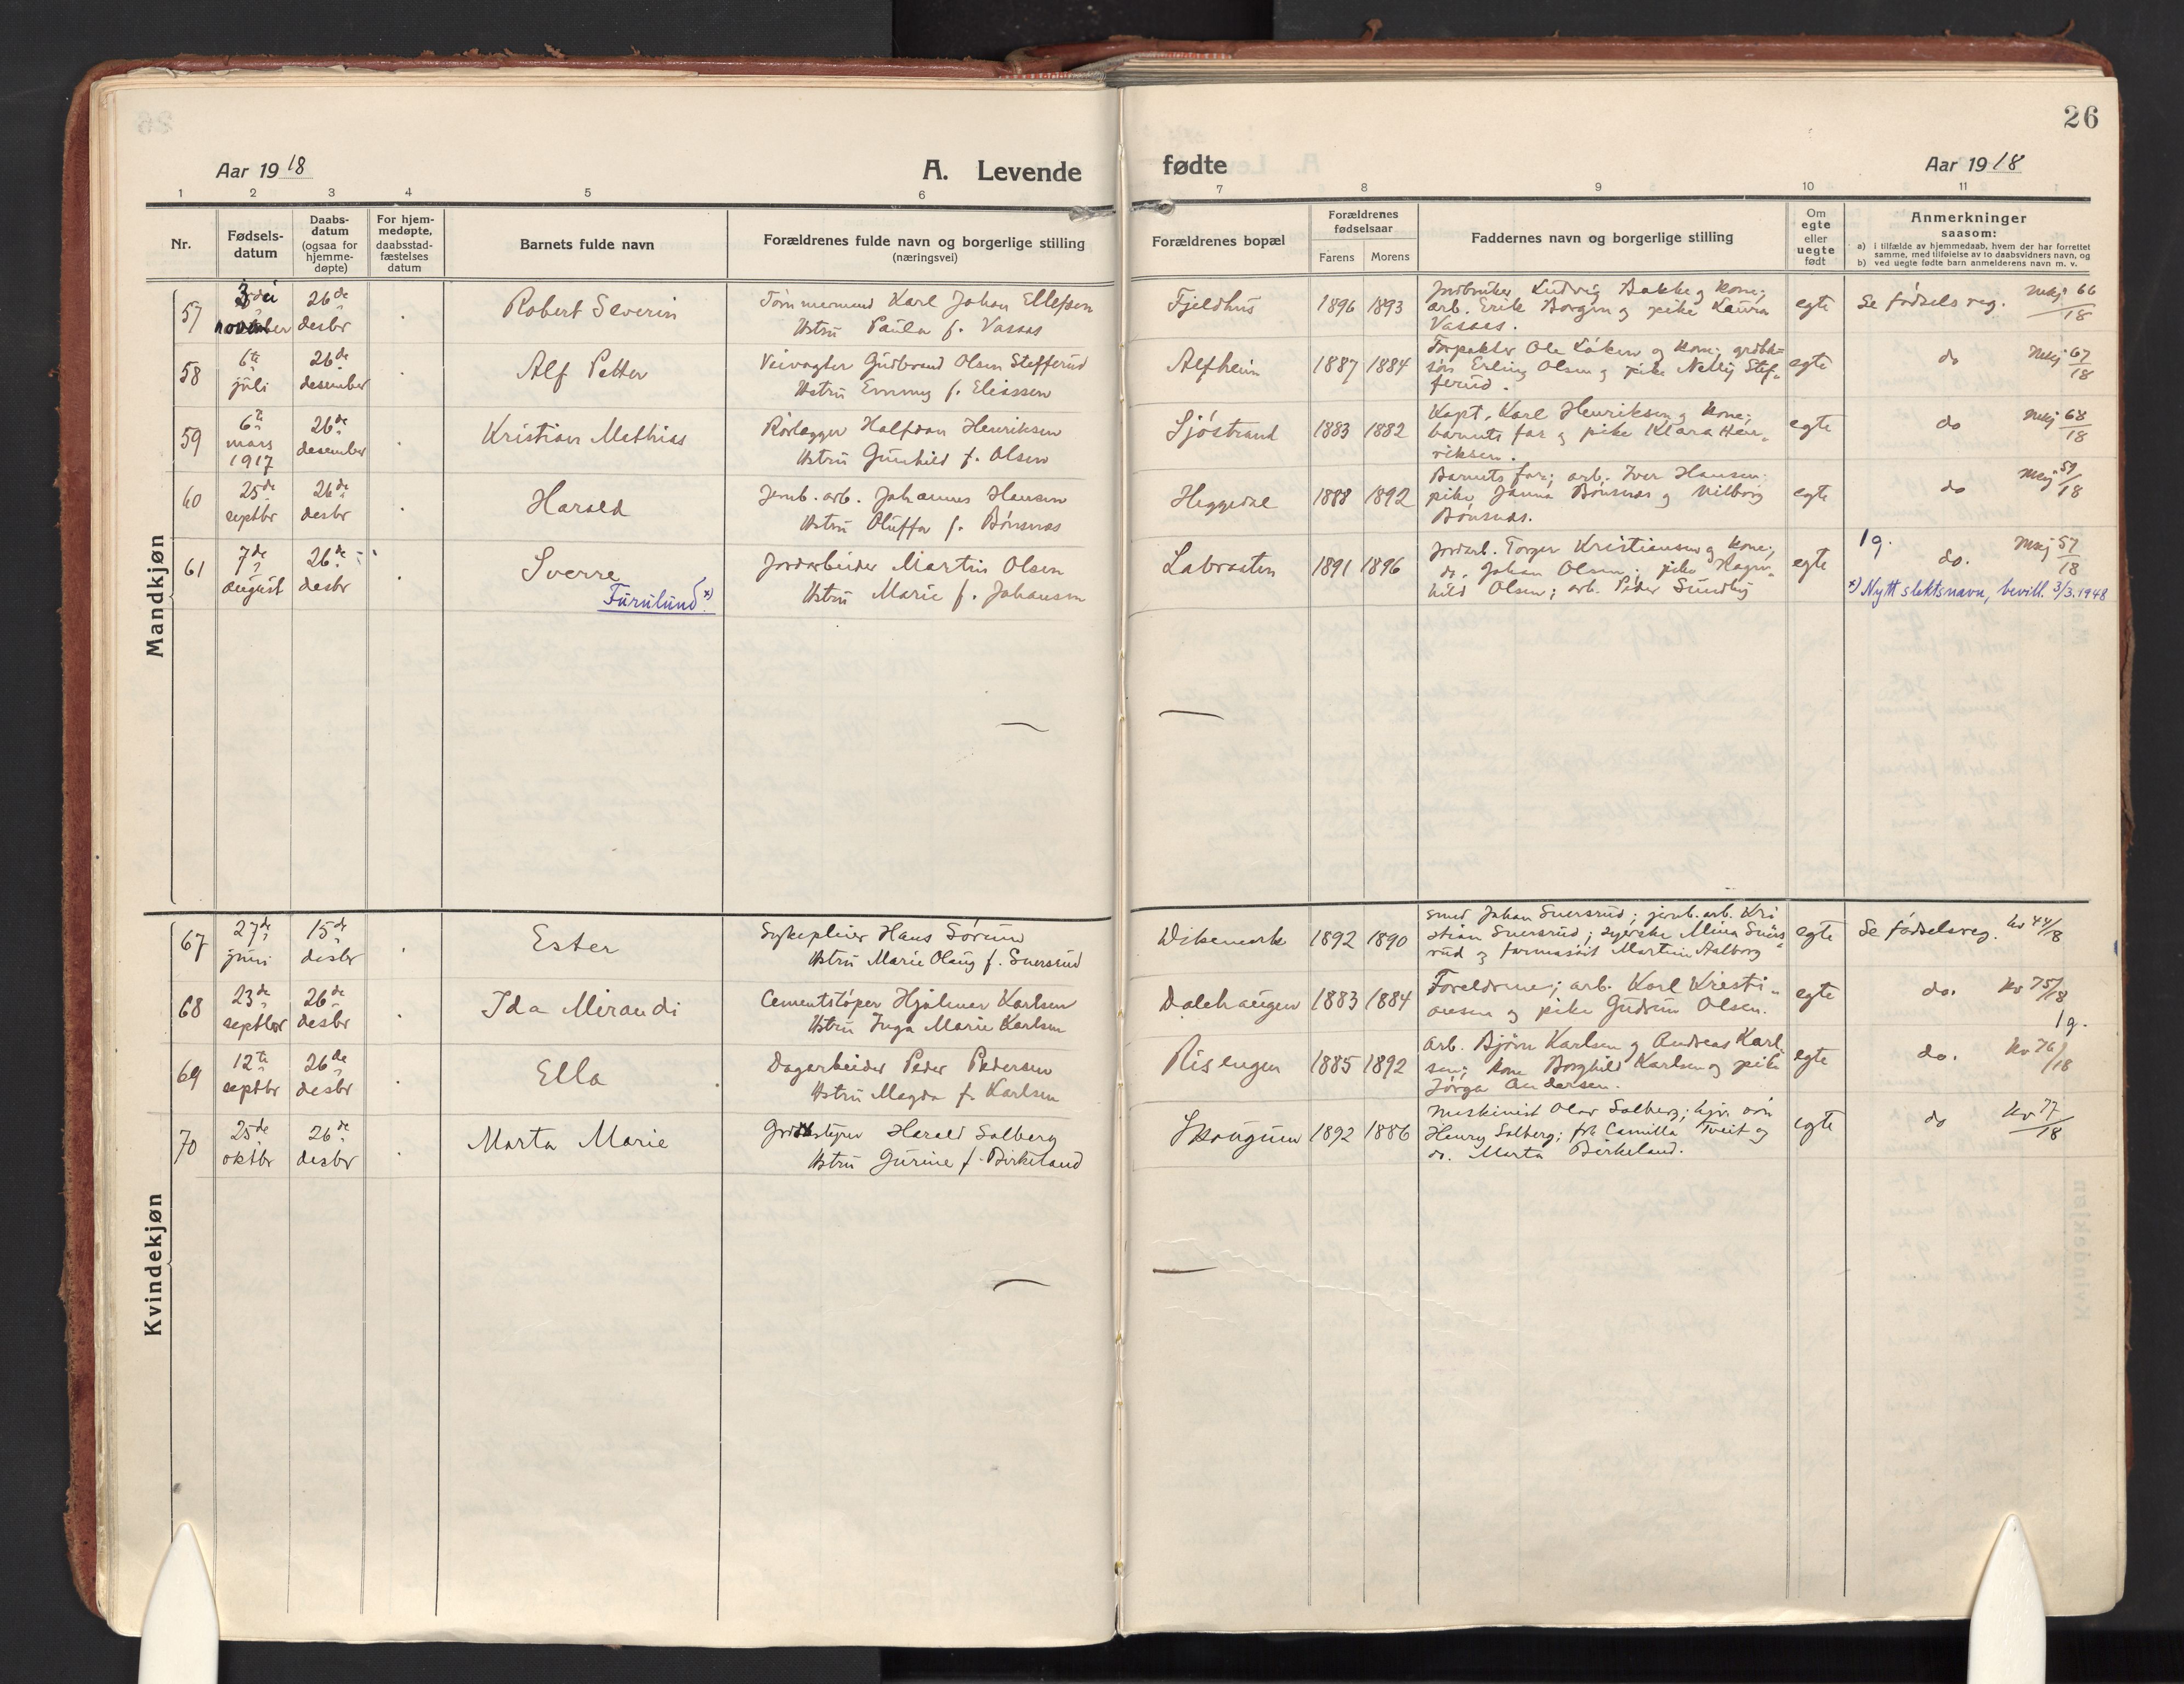 26
Aar 1918
A. Levende
fødte
Aar 1918
1 2 3 4 5 6 7 8 9 10 11
Nr.
Fødsels-
datum
Daabs-
datum
(ogsaa for
hjemme-
døpte)
For hjem-
medøpte,
daabsstad-
fæstelses
datum
Barnets fulde navn
Forældrenes fulde navn og borgerlige stilling
(næringsvei)
Forældrenes bopæl
Forældrenes
fødselsaar
Farens Morens
Faddernes navn og borgerlige stilling
Om
egte
eller
uegte
født
Anmerkninger
saasom:
a) i tilfælde av hjemmedaab, hvem der har forrettet
samme, med tilføielse av to daabsvidners navn, og
b) ved uegte fødte barn anmelderens navn m. v.
Mandkjøn
57
november
26de
desbr
Robert Severin
Tømmermand Karl Johan Ellefsen
Hstru Paula f. Vassas
Fjeldhus
1896 1893
Ludvig Bakke og kone;
arb. Erik Borgen og pike Laura
Vassas.
egte
Se fødselsreg. Mkj 66/18
58
6te
juli
26de
desember
Alf Petter
Veivogter Gudbrand Olsen Stefferud
Hstru Emmy f. Eliassen
Alfheim
1887 1884
Forpakter Ole Løken og kone; grdbr
søn Erling Olsen og pike Nelly Stef-
ferud.
egte
do Mkj 67/18
59
6te
mars
1917
26de
desember
Kristian Mathias
Rørlægger Halfdan Henriksen
Hstru Gunhild f. Olsen
Sjøstrand
1883 1882
Kapt. Karl Henriksen og kone;
barnets far og pike Klara Hen-
riksen.
egte
do Mkj 68/18
60
25de
septbr
26de
desbr
Harald
Jernb. arb. Johannes Hansen
Hstru Oluffa f. Bønsnæs
Heggedal
1888 1892
Barnets far; arb. Iver Hansen;
pike Janna Bønsnæs og Vilborg
Bønsnæs.
egte
do Mkj 59/18
61
7de
august
26de
desbr
Sverre
Furulund x)
Jordarbeider Martin Olsen
Hstru Marie f. Johansen
Labraaten
1891 1896
Jordarb. Torger Kristiansen og kone;
do. Johan Olsen; pike Ragn-
hild Olsen; arb. Peder Sundby
egte
19.
do. Mkj 57/18
x) Nytt slektsnavn, bevill. 3/3.1948
Kvindekjøn
67
27de
juni
15de
desbr
Ester
Sykepleier Hans Sørum
Hstru Marie Olaug f. Snersrud
Dikemark
1892 1890
Smed Johan Snersrud; jernb. arb. Kri
stian Snersrud; syerske Mina Sners-
rud og Martin Aalborg
egte
Se fødselsreg. Kv 44/18
68
23de
septbr
26de
desbr
Ida Mirandi
Cementstøper Hjalmar Karlsen
Hstru Inga Marie Karlsen
Dalehaugen
1883 1884
Foreldrene; arb. Karl Kristi-
ansen og pike Gudrun Olsen.
egte
do. Kv 75/18
19.
69
12te
septbr
26de
desbr
Ella
Dagarbeider Peder Pedersen
Hstru Magda f. Karlsen
Risengen
1885 1892
Arb. Bjørn Karlsen og Andreas Karl
sen; kone Borghild Karlsen og pike
Jørga Andersen.
egte
do. Kv 76/18
70
25de
oktbr
26de
desbr
Marta Marie
Harald Solberg
Hstru Gurine f. Birkeland
Skougum
1892 1886
Maskinist Olav Solberg;
Henry Solberg; frk Camilla Tveit og
do. Marta Birkeland.
egte
do Kv 77/18